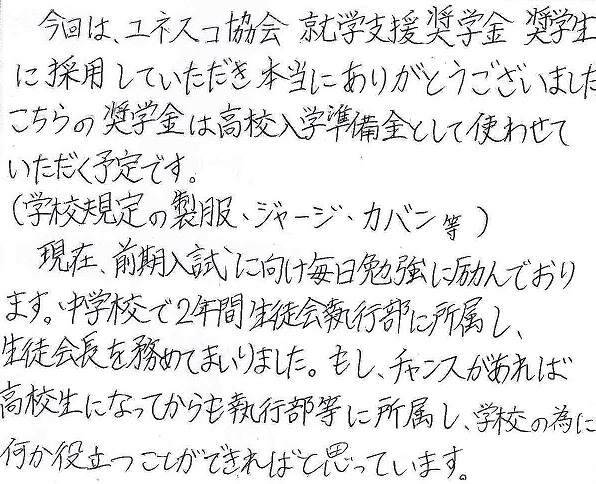 今回は、ユネスコ協会 就学支援奨学金 奨学生
に採用していただき本当にありがとうございました
こちらの奨学金は高校入学準備金として使わせて
いただく予定です。
(学校規定の製服、ジャージ、カバン等)
現在、前期入試に向け毎日勉強に励んでおり
ます。中学校で2年間生徒会執行部に所属し、
生徒会長を務めてまいりました。もし、チャンスがあれば
高校生になってからも執行部等に所属し、学校の為に
何か役立つことができればと思っています。